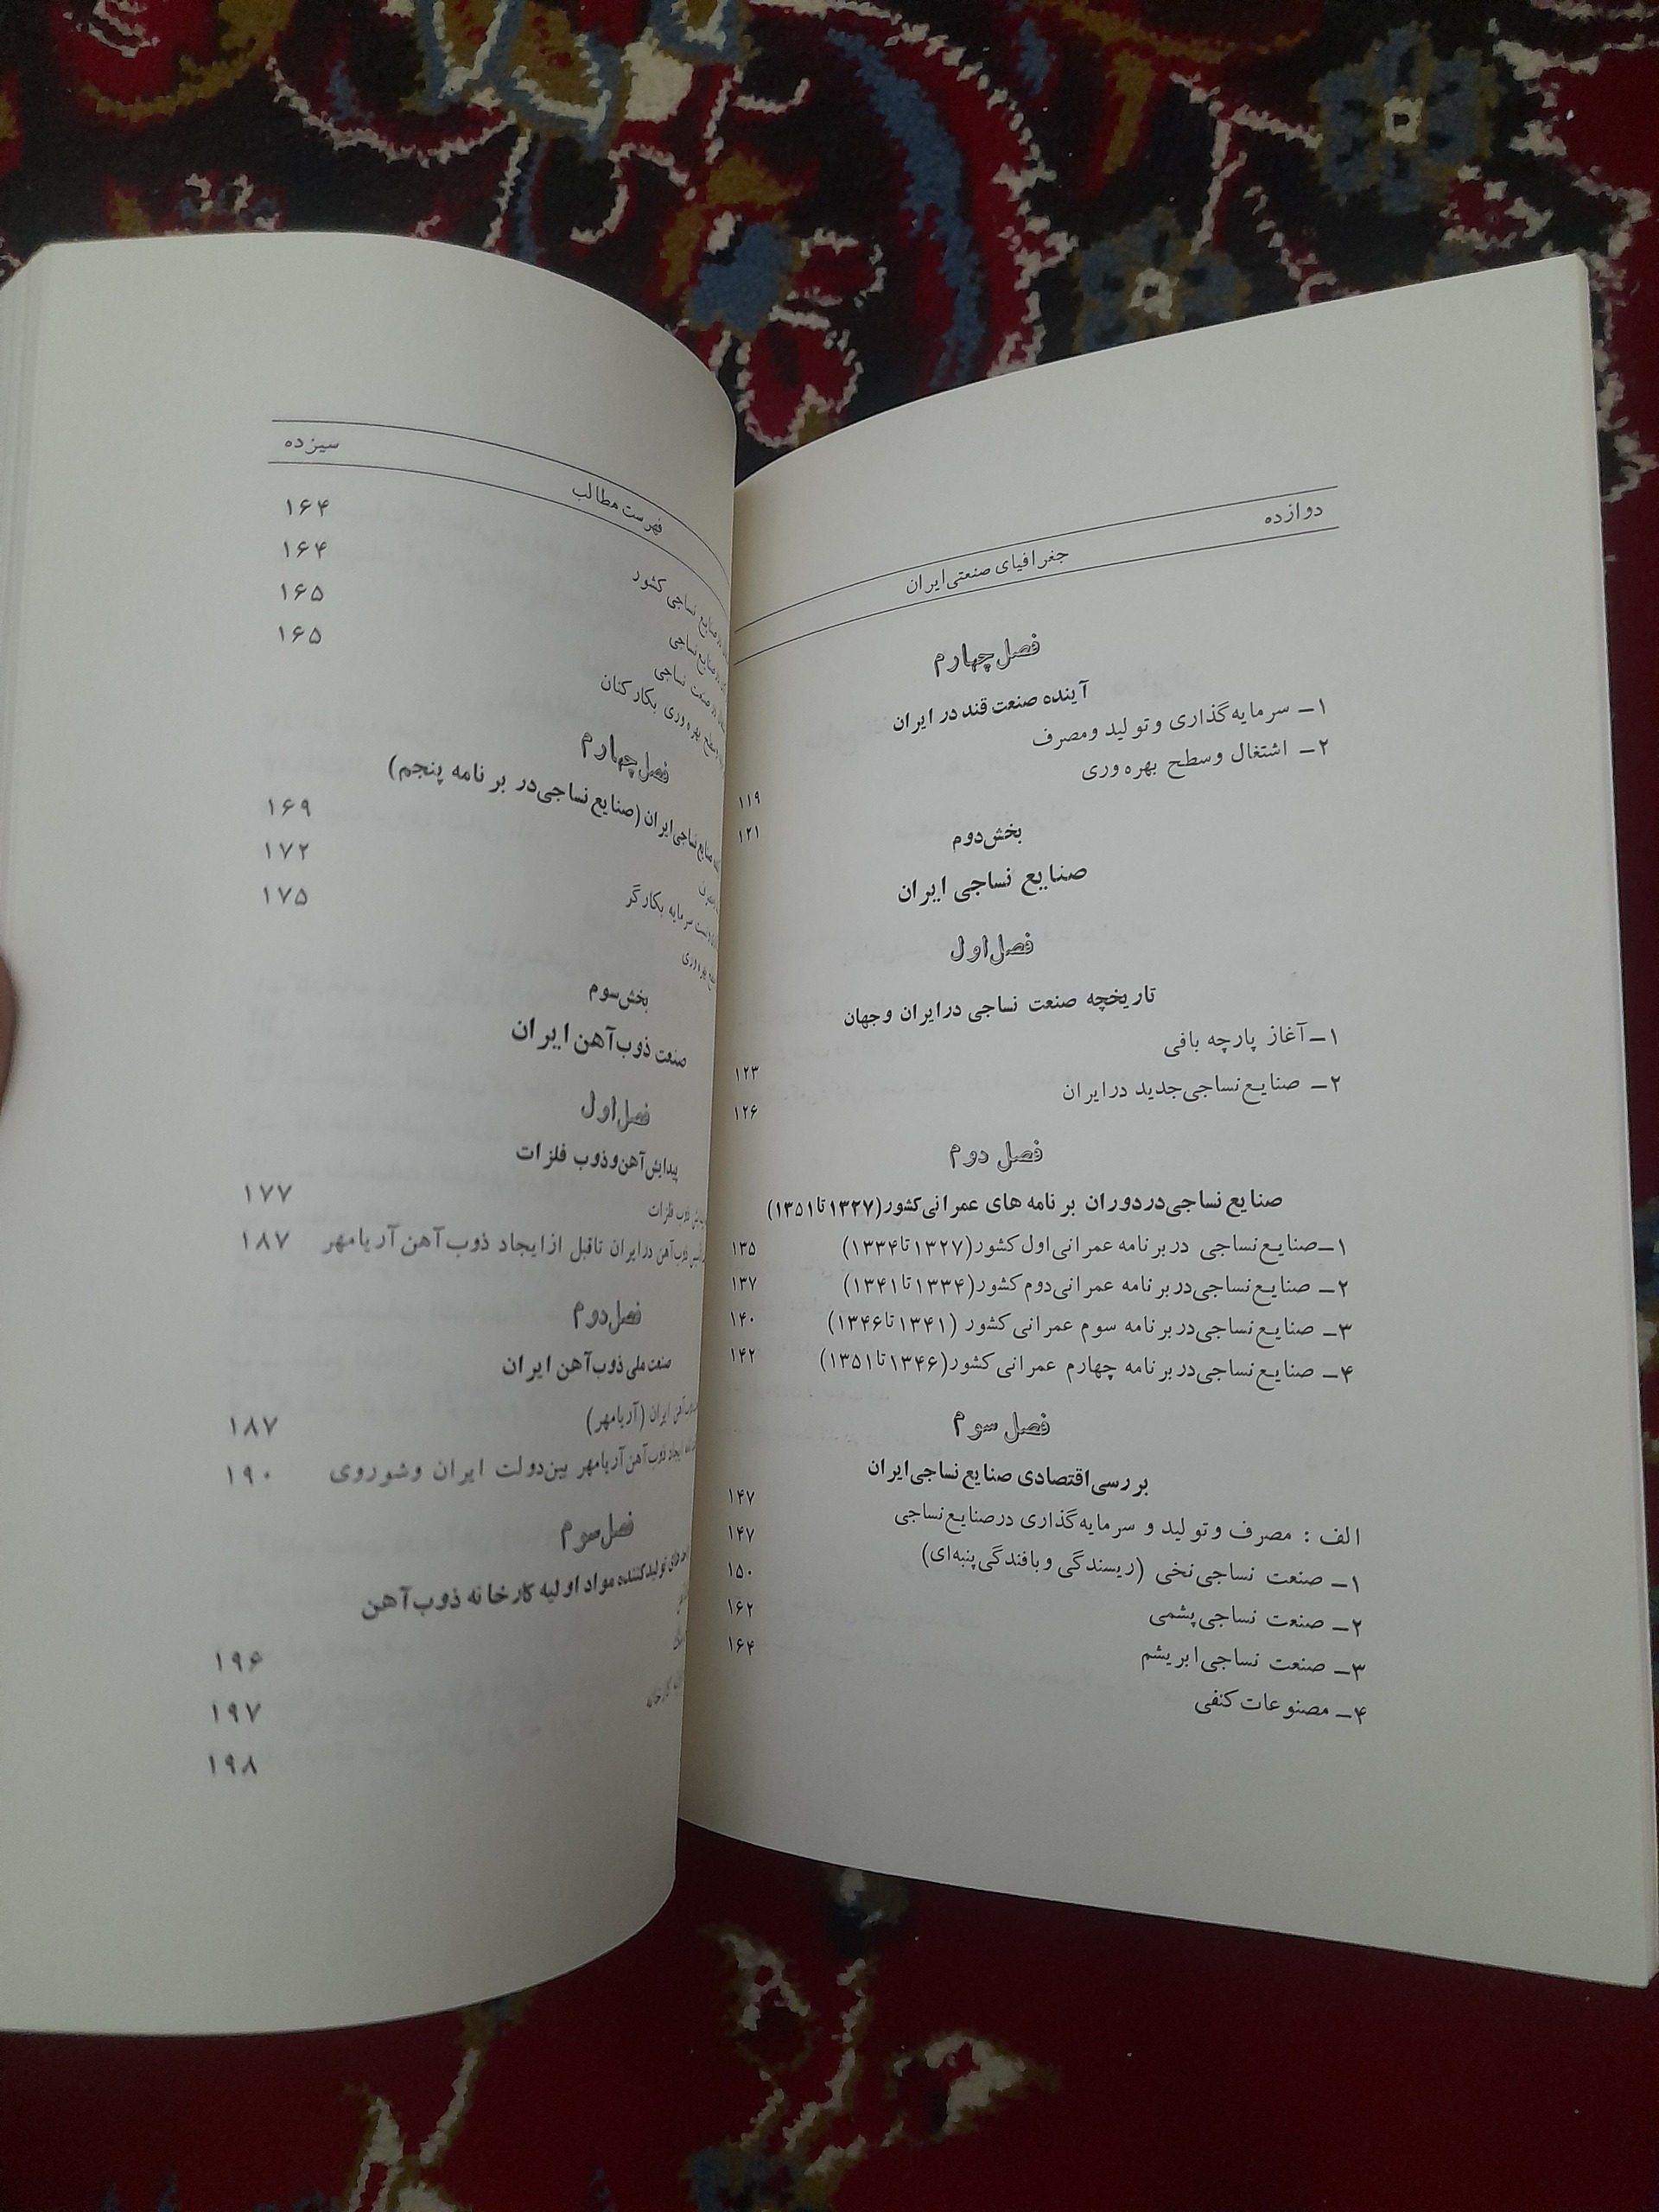 دوازده
جغرافیای صنعتی ایران
فصل چهارم
آینده صنعت قند در ایران
۱ــ سرمایه‌گذاری و تولید ومصرف ۱۱۹
۲ــ اشتغال وسطح بهره‌وری ۱۲۱
بخش دوم
صنایع نساجی ایران
فصل اول
تاریخچه صنعت نساجی درایران وجهان
۱ــ آغاز پارچه بافی ۱۲۳
۲ــ صنایع نساجی جدید درایران ۱۲۶
فصل دوم
صنایع نساجی در دوران برنامه های عمرانی کشور(۱۳۲۷ تا ۱۳۵۱)
۱ــ صنایع نساجی در برنامه عمرانی اول کشور(۱۳۲۷ تا ۱۳۳۴) ۱۳۵
۲ــ صنایع نساجی در برنامه عمرانی دوم کشور(۱۳۳۴ تا ۱۳۴۱) ۱۳۷
۳ــ صنایع نساجی در برنامه سوم عمرانی کشور (۱۳۴۱ تا ۱۳۴۶) ۱۴۰
۴ــ صنایع نساجی در برنامه چهارم عمرانی کشور(۱۳۴۶ تا ۱۳۵۱) ۱۴۲
فصل سوم
بررسی اقتصادی صنایع نساجی ایران
الف : مصرف و تولید و سرمایه‌گذاری درصنایع نساجی ۱۴۷
۱ــ صنعت نساجی نخی (ریسندگی و بافندگی پنبه‌ای) ۱۴۷
۲ــ صنعت نساجی پشمی ۱۵۰
۳ــ صنعت نساجی ابریشم ۱۶۲
۴ــ مصنوعات کنفی ۱۶۴
فهرست مطالب
سیزده
صنایع نساجی کشور ۱۶۴
صنایع نساجی ۱۶۴
در صنعت نساجی ۱۶۵
سطح بهره‌وری بکارکنان ۱۶۵
فصل چهارم
صنایع نساجی ایران (صنایع نساجی در برنامه پنجم)
۱۶۹
سرمایه بکارگر ۱۷۲
بهره‌وری ۱۷۵
بخش سوم
صنعت ذوب آهن ایران
فصل اول
پیدایش آهن و ذوب فلزات
ذوب فلزات ۱۷۷
ذوب آهن درایران تاقبل از ایجاد ذوب آهن آریامهر ۱۸۷
فصل دوم
صنعت ملی ذوب آهن ایران
آهن ایران (آریامهر) ۱۸۷
ایجاد ذوب آهن آریامهر بین دولت ایران وشوروی ۱۹۰
فصل سوم
تولید کننده مواد اولیه کارخانه ذوب آهن
۱۹۶
۱۹۷
کارخانه ۱۹۸